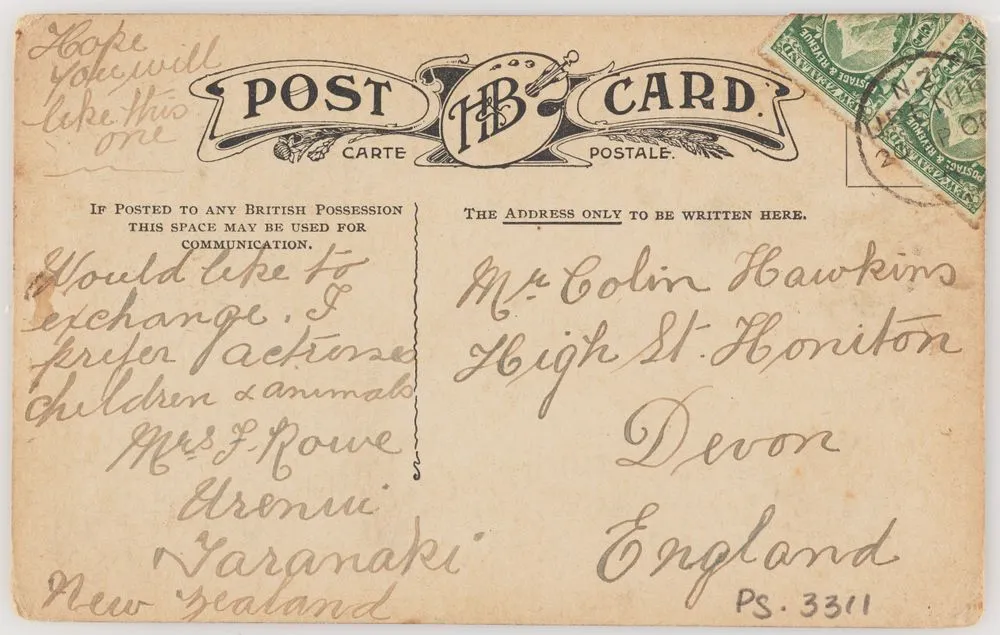 Hope
you will
like this
one
POST CARD.
HB
CARTE POSTALE.
IF POSTED TO ANY BRITISH POSSESSION
THIS SPACE MAY BE USED FOR
COMMUNICATION.
THE ADDRESS ONLY TO BE WRITTEN HERE.
Would like to
exchange. I
prefer actresses
children & animals
Mrs F. Rowe
Urenui
Taranaki
New Zealand
Mr. Colin Hawkins
High St. Honiton
Devon
England
PS. 3311
POSTAGE & REVENUE
POSTAGE & REVENUE